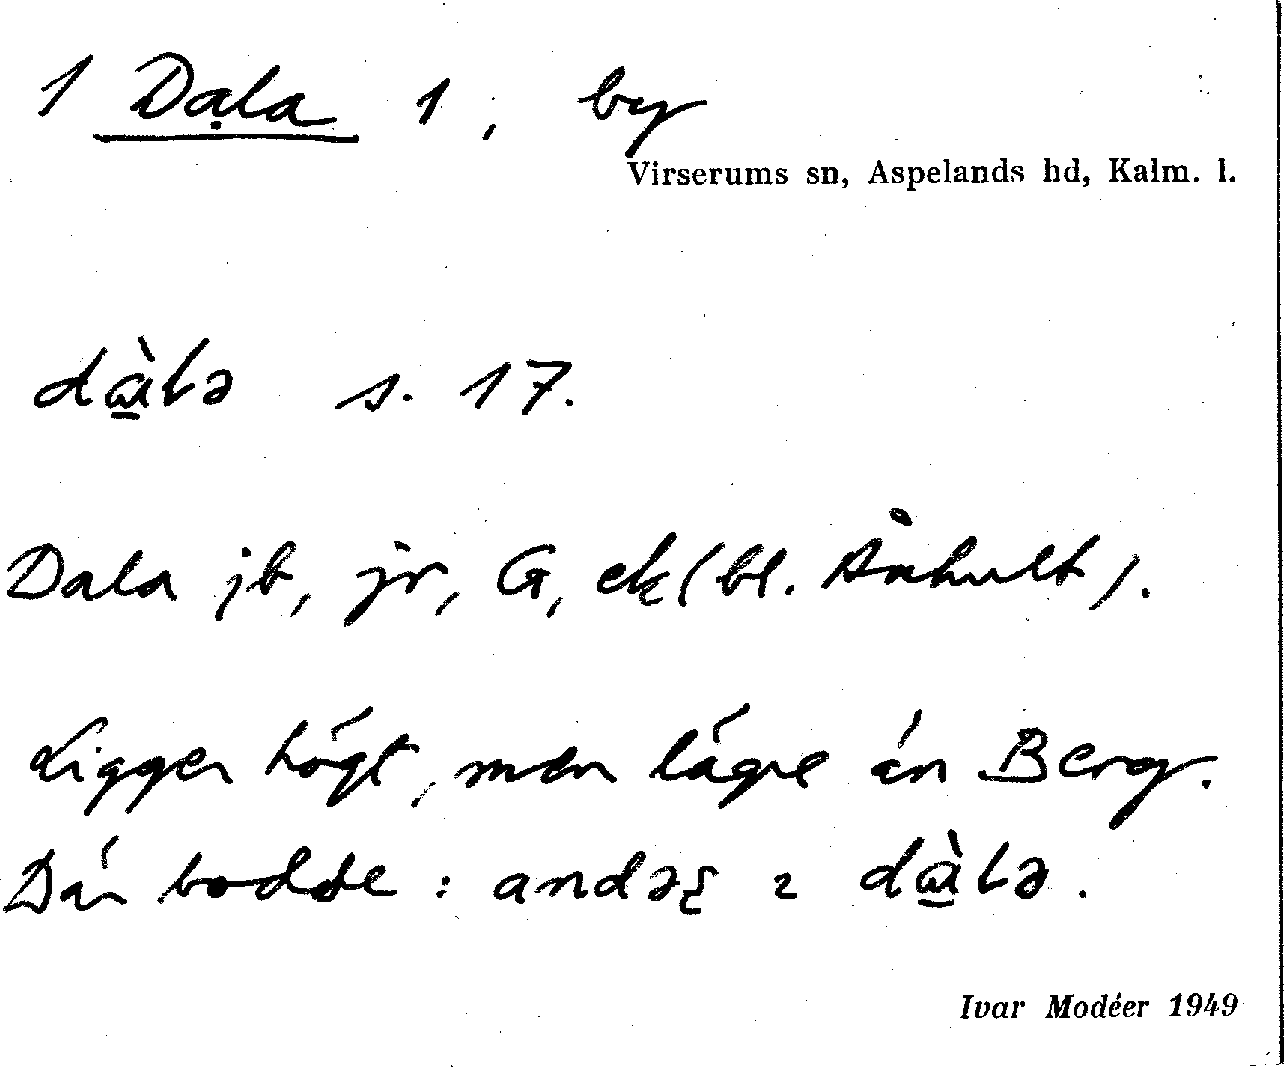 1 Dala 1, by
Virserums sn, Aspelands hd, Kalm. l.
dàlə s. 17.
Dala jb, jr, G, ek (bl. Ånhult).
Ligger högt, men lägre än Berg.
Där bodde: andəʂ ɪ dàlə.
Ivar Modéer 1949